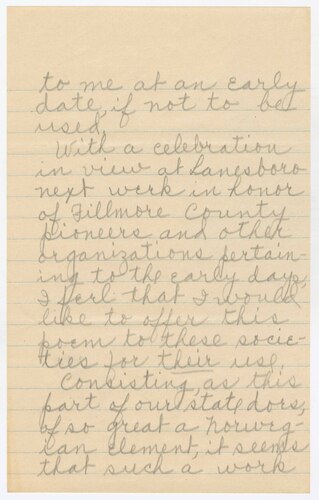 to me at an early
date, if not to be
used.
With a celebration
in view at Lanesboro
next week in honor
of Fillmore County
pioneers and other
organizations pertain-
ing to the early days,
I feel that I would
like to offer this
poem to these socie-
ties for their use.
Consisting, as this
part of our state does,
of so great a Norweg-
ian element, it seems
that such a work